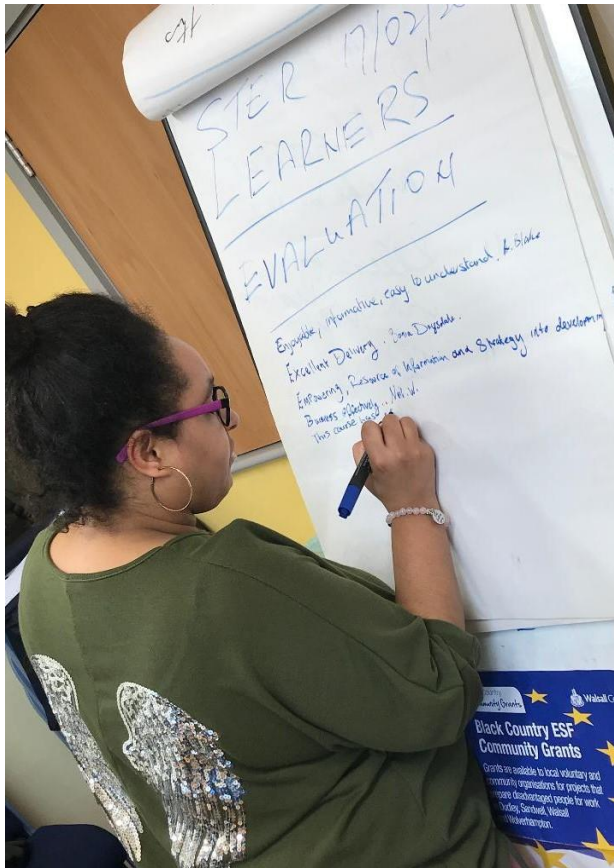 STER 17/02/2
LEARNERS
EVALUATION
Enjoyable, informative, easy to understand. A. Blake
Excellent Delivery.
Empowering, Resource of Information and Strategy into developm
Business effectively..
This course has
Community Grants
Walsall C
Black Country ESF
Community Grants
Grants are available to local voluntary and
community organisations for projects that
prepare disadvantaged people for work
Dudley, Sandwell, Walsall
Wolverhampton.